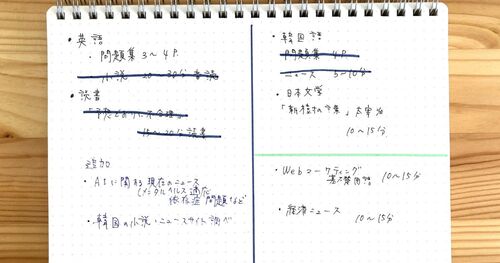 ・英語
・問題集 3〜4P.
小説 20〜30分 音読
・読書
「予想どおりに不合理」
15〜20分 読書
追加
・AIに関する現在のニュース
(メンタルヘルス適応
依存症 問題など
・韓国の小説・ニュースサイト調べ
・韓国語
問題集 4P.
ニュース 5〜10分
・日本文学
「新樹の言葉」太宰治
10〜15分
・Webマーケティング
基礎用語 10〜15分
・経済ニュース
10〜15分